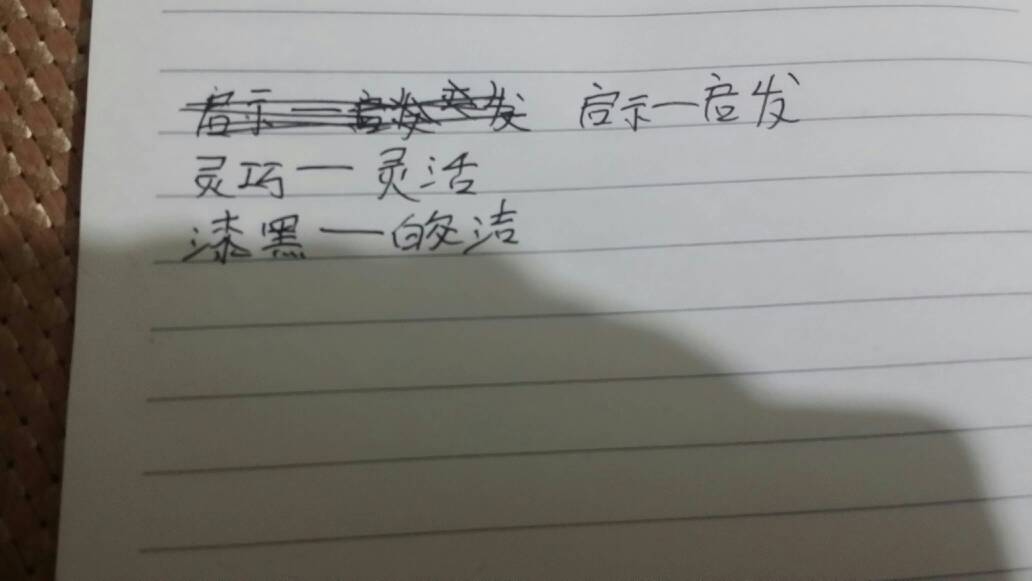 启示一启发 启示一启发
灵巧一灵活
漆黑一皎洁